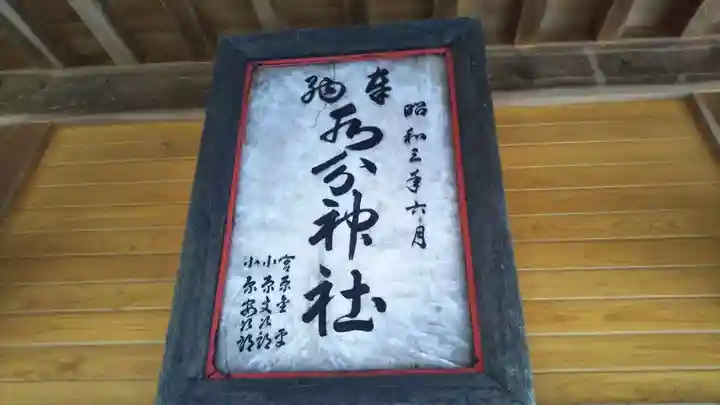 奉納
昭和三年六月
水分神社
宮原金平
小原丈次郎
小原安次郎